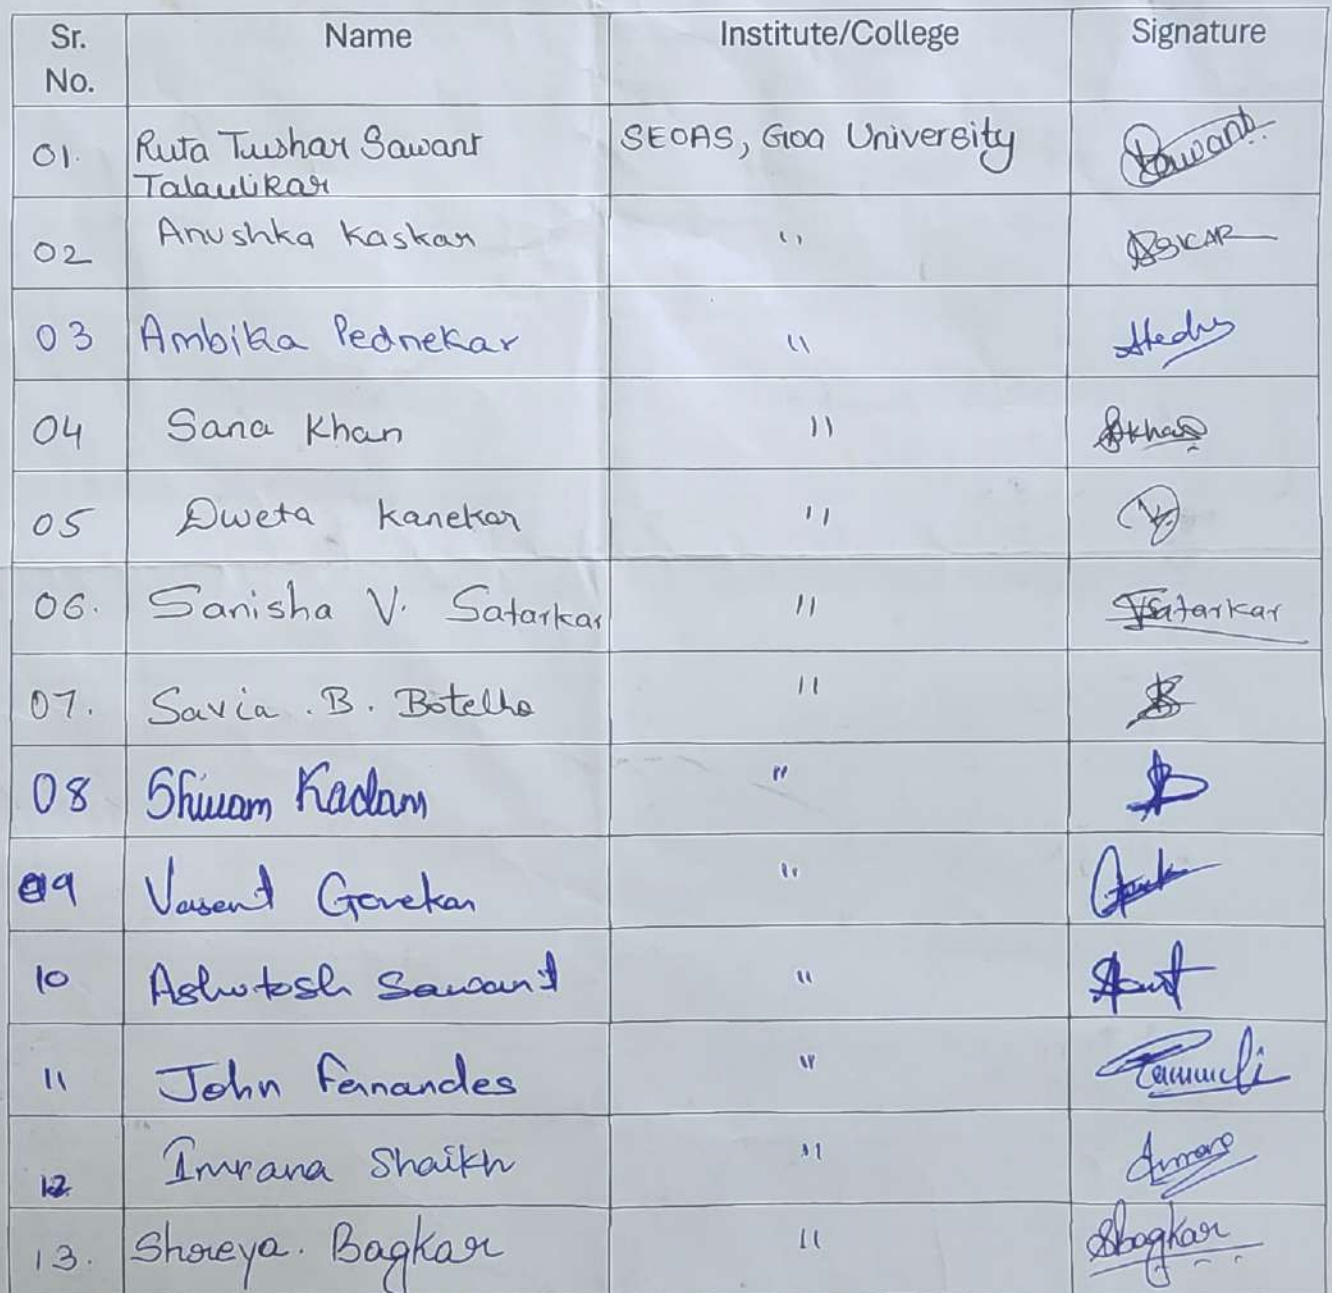 Sr. No. Name Institute/College Signature
01. Ruta Tushar Sawant Talaulikar SEOAS, Goa University Rawant
02 Anushka Kaskar " ASKAR
03 Ambika Pednekar "
04 Sana Khan " Skhan
05 Dweta Kanekar "
06. Sanisha V. Satarkar " Satarkar
07. Savia . B. Botelho "
08 Shivam Kadam "
09 Vasent Gavekar "
10 Ashutosh Sawant "
11 John Fernandes "
12 Imrana Shaikh "
13. Shreya. Bagkar " Sbagkar